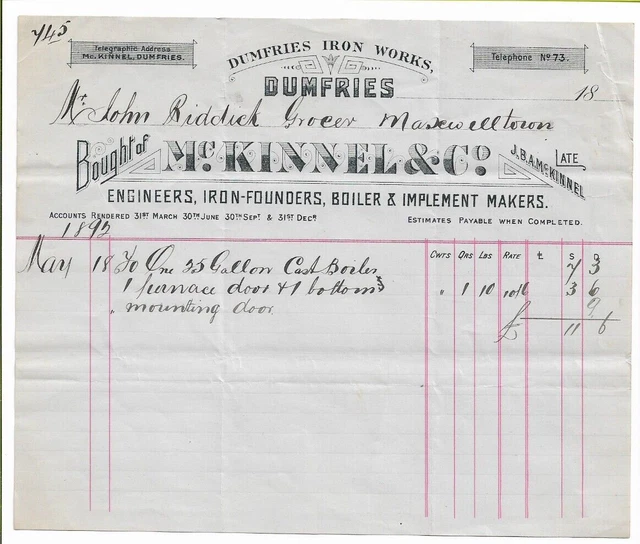 745
Telegraphic Address
Mc. KINNEL, DUMFRIES.
DUMFRIES IRON WORKS,
DUMFRIES
Telephone No 73.
18
Mr John Riddick Grocer Maxwelltown
Bought of McKINNEL & Co.
LATE
J.B.A. McKINNEL
ENGINEERS, IRON-FOUNDERS, BOILER & IMPLEMENT MAKERS.
ACCOUNTS RENDERED 31ST MARCH 30TH JUNE 30TH SEPT & 31ST DECR
ESTIMATES PAYABLE WHEN COMPLETED.
1892
CWTS QRS LBS RATE £ S D
May 18 To One 25 Gallon Cast Boiler 7 3
1 furnace door & 1 bottom " 1 10 10/6 3 6
" mounting door 9
£ 11 6